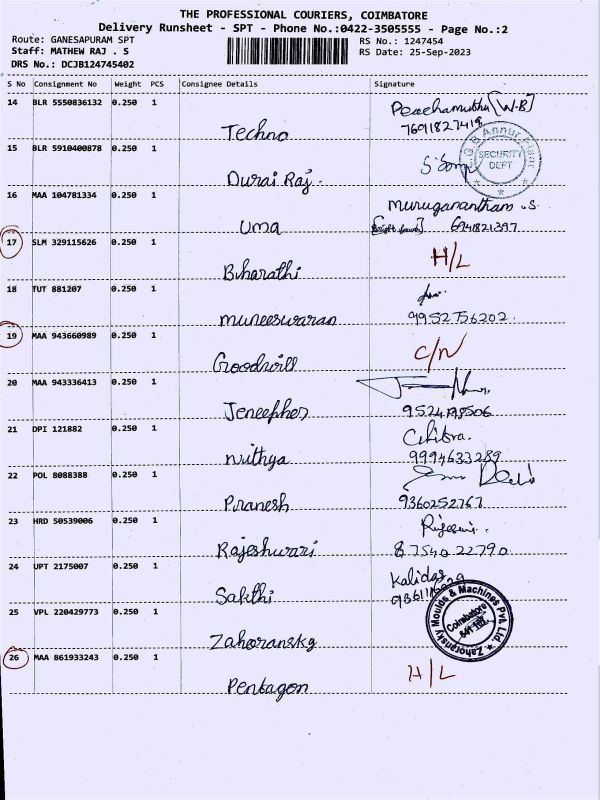 THE PROFESSIONAL COURIERS, COIMBATORE
Delivery Runsheet - SPT - Phone No.:0422-3505555 - Page No.:2
Route: GANESAPURAM SPT
Staff: MATHEW RAJ . S
DRS No.: DCJB124745402
RS No.: 1247454
RS Date: 25-Sep-2023
S No Consignment No Weight PCS Consignee Details Signature
14 BLR 5550836132 0.250 1
Techno
76911827419
15 BLR 5910400878 0.250 1
Durai Raj.
SECURITY
DEPT
16 MAA 104781334 0.250 1
Uma
Muruganantham .S.
6941821397
17 SLM 329115626 0.250 1 H/L
Bharathi
18 TUT 881207 0.250 1
Muneeswaran 9952756202.
19 MAA 943660989 0.250 1 C/N
Goodwill
20 MAA 943336413 0.250 1
Jeneepher
21 DPI 121882 0.250 1 Chitra.
Nithya 9994633289
22 POL 8088388 0.250 1
Pranesh 9360252767
23 HRD 50539006 0.250 1
Rajeshwari 87540 22790
24 UPT 2175007 0.250 1 Kalidas
Sakthi
25 VPL 220429773 0.250 1
Zahoransky
Zahoransky Moulds & Machines Pvt. Ltd.
Coimbatore
26 MAA 861933243 0.250 1 H/L
Pentagon